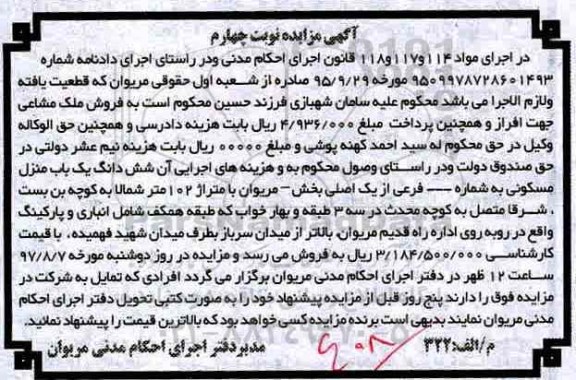 آگهی مزایده نوبت چهارم
در اجرای مواد ۱۱۴و۱۱۷و۱۱۸ قانون اجرای احکام مدنی ودر راستای اجرای دادنامه شماره
۹۵۰۹۹۷۸۷۲۸۶۰۱۴۹۳ مورخه ۹۵/۹/۲۹ صادره از شعبه اول حقوقی مریوان که قطعیت یافته
ولازم الاجرا می باشد محکوم علیه سامان شهبازی فرزند حسین محکوم است به فروش ملک مشاعی
جهت افراز و همچنین پرداخت مبلغ ۴/۹۳۶/۰۰۰ ریال بابت هزینه دادرسی و همچنین حق الوکاله
وکیل در حق محکوم له سید احمد کهنه پوشی و مبلغ ۰۰۰۰۰ ریال بابت هزینه نیم عشر دولتی در
حق صندوق دولت ودر راستای وصول محکوم به و هزینه های اجرایی آن شش دانگ یک باب منزل
مسکونی به شماره --- فرعی از یک اصلی بخش – مریوان با متراژ ۱۰۲ متر شمالا به کوچه بن بست
، شرقا متصل به کوچه محدث در سه ۳ طبقه و بهار خواب که طبقه همکف شامل انباری و پارکینگ
واقع در روبه روی اداره راه قدیم مریوان، بالاتر از میدان سرباز بطرف میدان شهید فهمیده، با قیمت
کارشناسی ۳/۱۸۴/۵۰۰/۰۰۰ ریال به فروش می رسد و مزایده در روز دوشنبه مورخه ۹۷/۸/۷
ساعت ۱۲ ظهر در دفتر اجرای احکام مدنی مریوان برگزار می گردد افرادی که تمایل به شرکت در
مزایده فوق را دارند پنج روز قبل از مزایده پیشنهاد خود را به صورت کتبی تحویل دفتر اجرای احکام
مدنی مریوان نمایند بدیهی است برنده مزایده کسی خواهد بود که بالاترین قیمت را پیشنهاد نمائید.
م/الف:۳۲۲
مدیر دفتر اجرای احکام مدنی مریوان